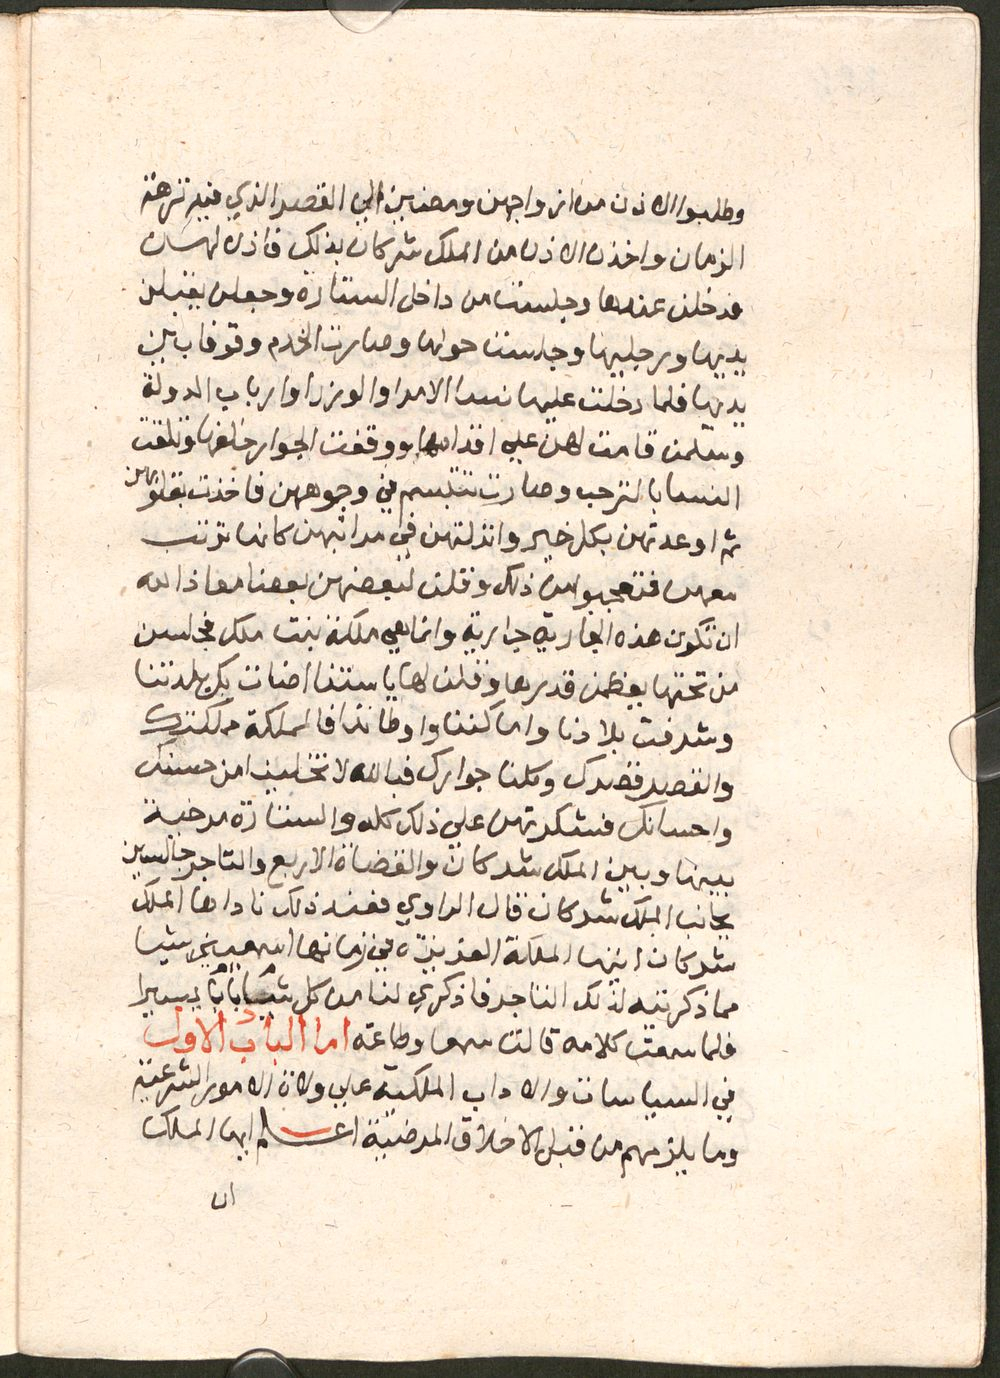 وطلبوا الاذن من ازواجهن ومضين الي القصر الذي فيه نزهة
الزمان واخذن الاذن من الملك شركان بذلك فاذن لهن
فدخلن عندها وجلست من داخل الستارة وجعلن يقبلن
يديها ورجليها وجلست حولها وصارت الخدم وقوفا بين
يديها فلما دخلت عليها نسا الامرا والوزرا وارباب الدولة
وسلمن قامت لهن علي اقدامها ووقفت الجوار خلفها وتلقت
النسا بالترحب وصارت تتبسم في وجوههن فاخذت بقلوبهن
ثم اوعدتهن بكل خير وانزلتهن في مراتبهن كانها تربت
معهن فتعجبوا من ذلك وقلن لبعضهن بعضا معاذ الله
ان تكون هذه الجارية جارية وانما هي ملكة بنت ملك فجلسن
من تحتها يعظمن قدرها وقلن لها يا ستنا اضات بك بلدتنا
وشرفت بلادنا واماكننا واوطاننا فالمملكة مملكتك
والقصر قصرك وكلنا جوارك فبالله لا تخلينا من حسنك
واحسانك فشكرتهن علي ذلك كله والستارة مرخية
بينها وبين الملك شركان والقضاة الاربع والتاجر جالسين
بجانب الملك شركان قال الراوي فعند ذلك ناداها الملك
شركان ايتها الملكة العزيزة في زمانها اسمعيني شيا
مما ذكرتيه لذلك التاجر فاذكري لنا من كل شي بابا يسيرا
فلما سمعت كلامه قالت سمعا وطاعة اما الباب الاول
في السياسات والاداب الملكية علي ولاة الامور الشرعية
وما يلزمهم من قبل الاخلاق المرضية اعلم ايها الملك
ان